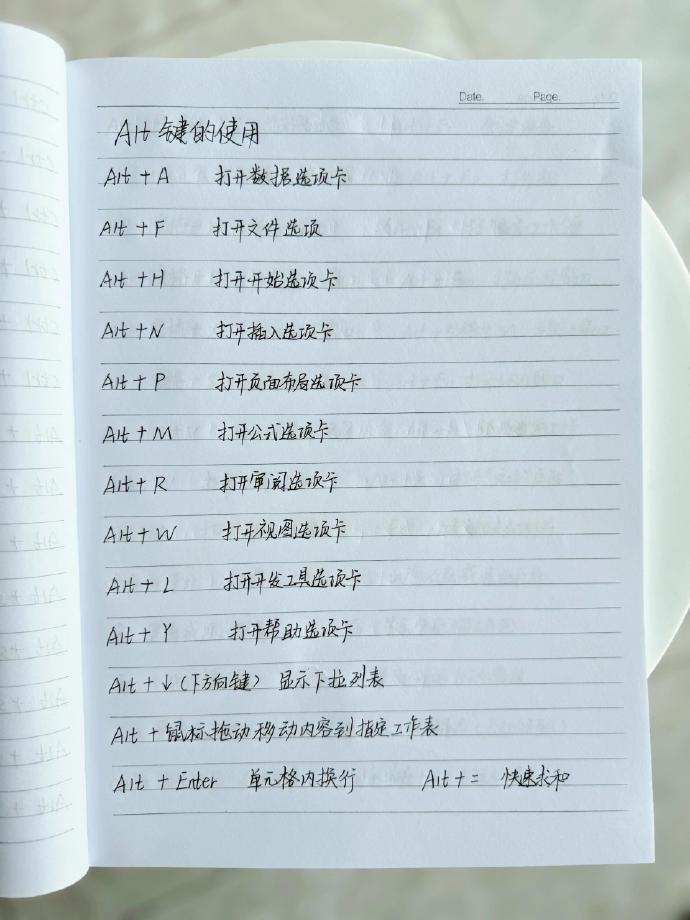 Date. Page.
Alt 键的使用
Alt + A 打开数据选项卡
Alt + F 打开文件选项
Alt + H 打开开始选项卡
Alt + N 打开插入选项卡
Alt + P 打开页面布局选项卡
Alt + M 打开公式选项卡
Alt + R 打开审阅选项卡
Alt + W 打开视图选项卡
Alt + L 打开开发工具选项卡
Alt + Y 打开帮助选项卡
Alt + ↓（下方向键） 显示下拉列表
Alt + 鼠标拖动移动内容到指定工作表
Alt + Enter 单元格内换行 Alt + = 快速求和